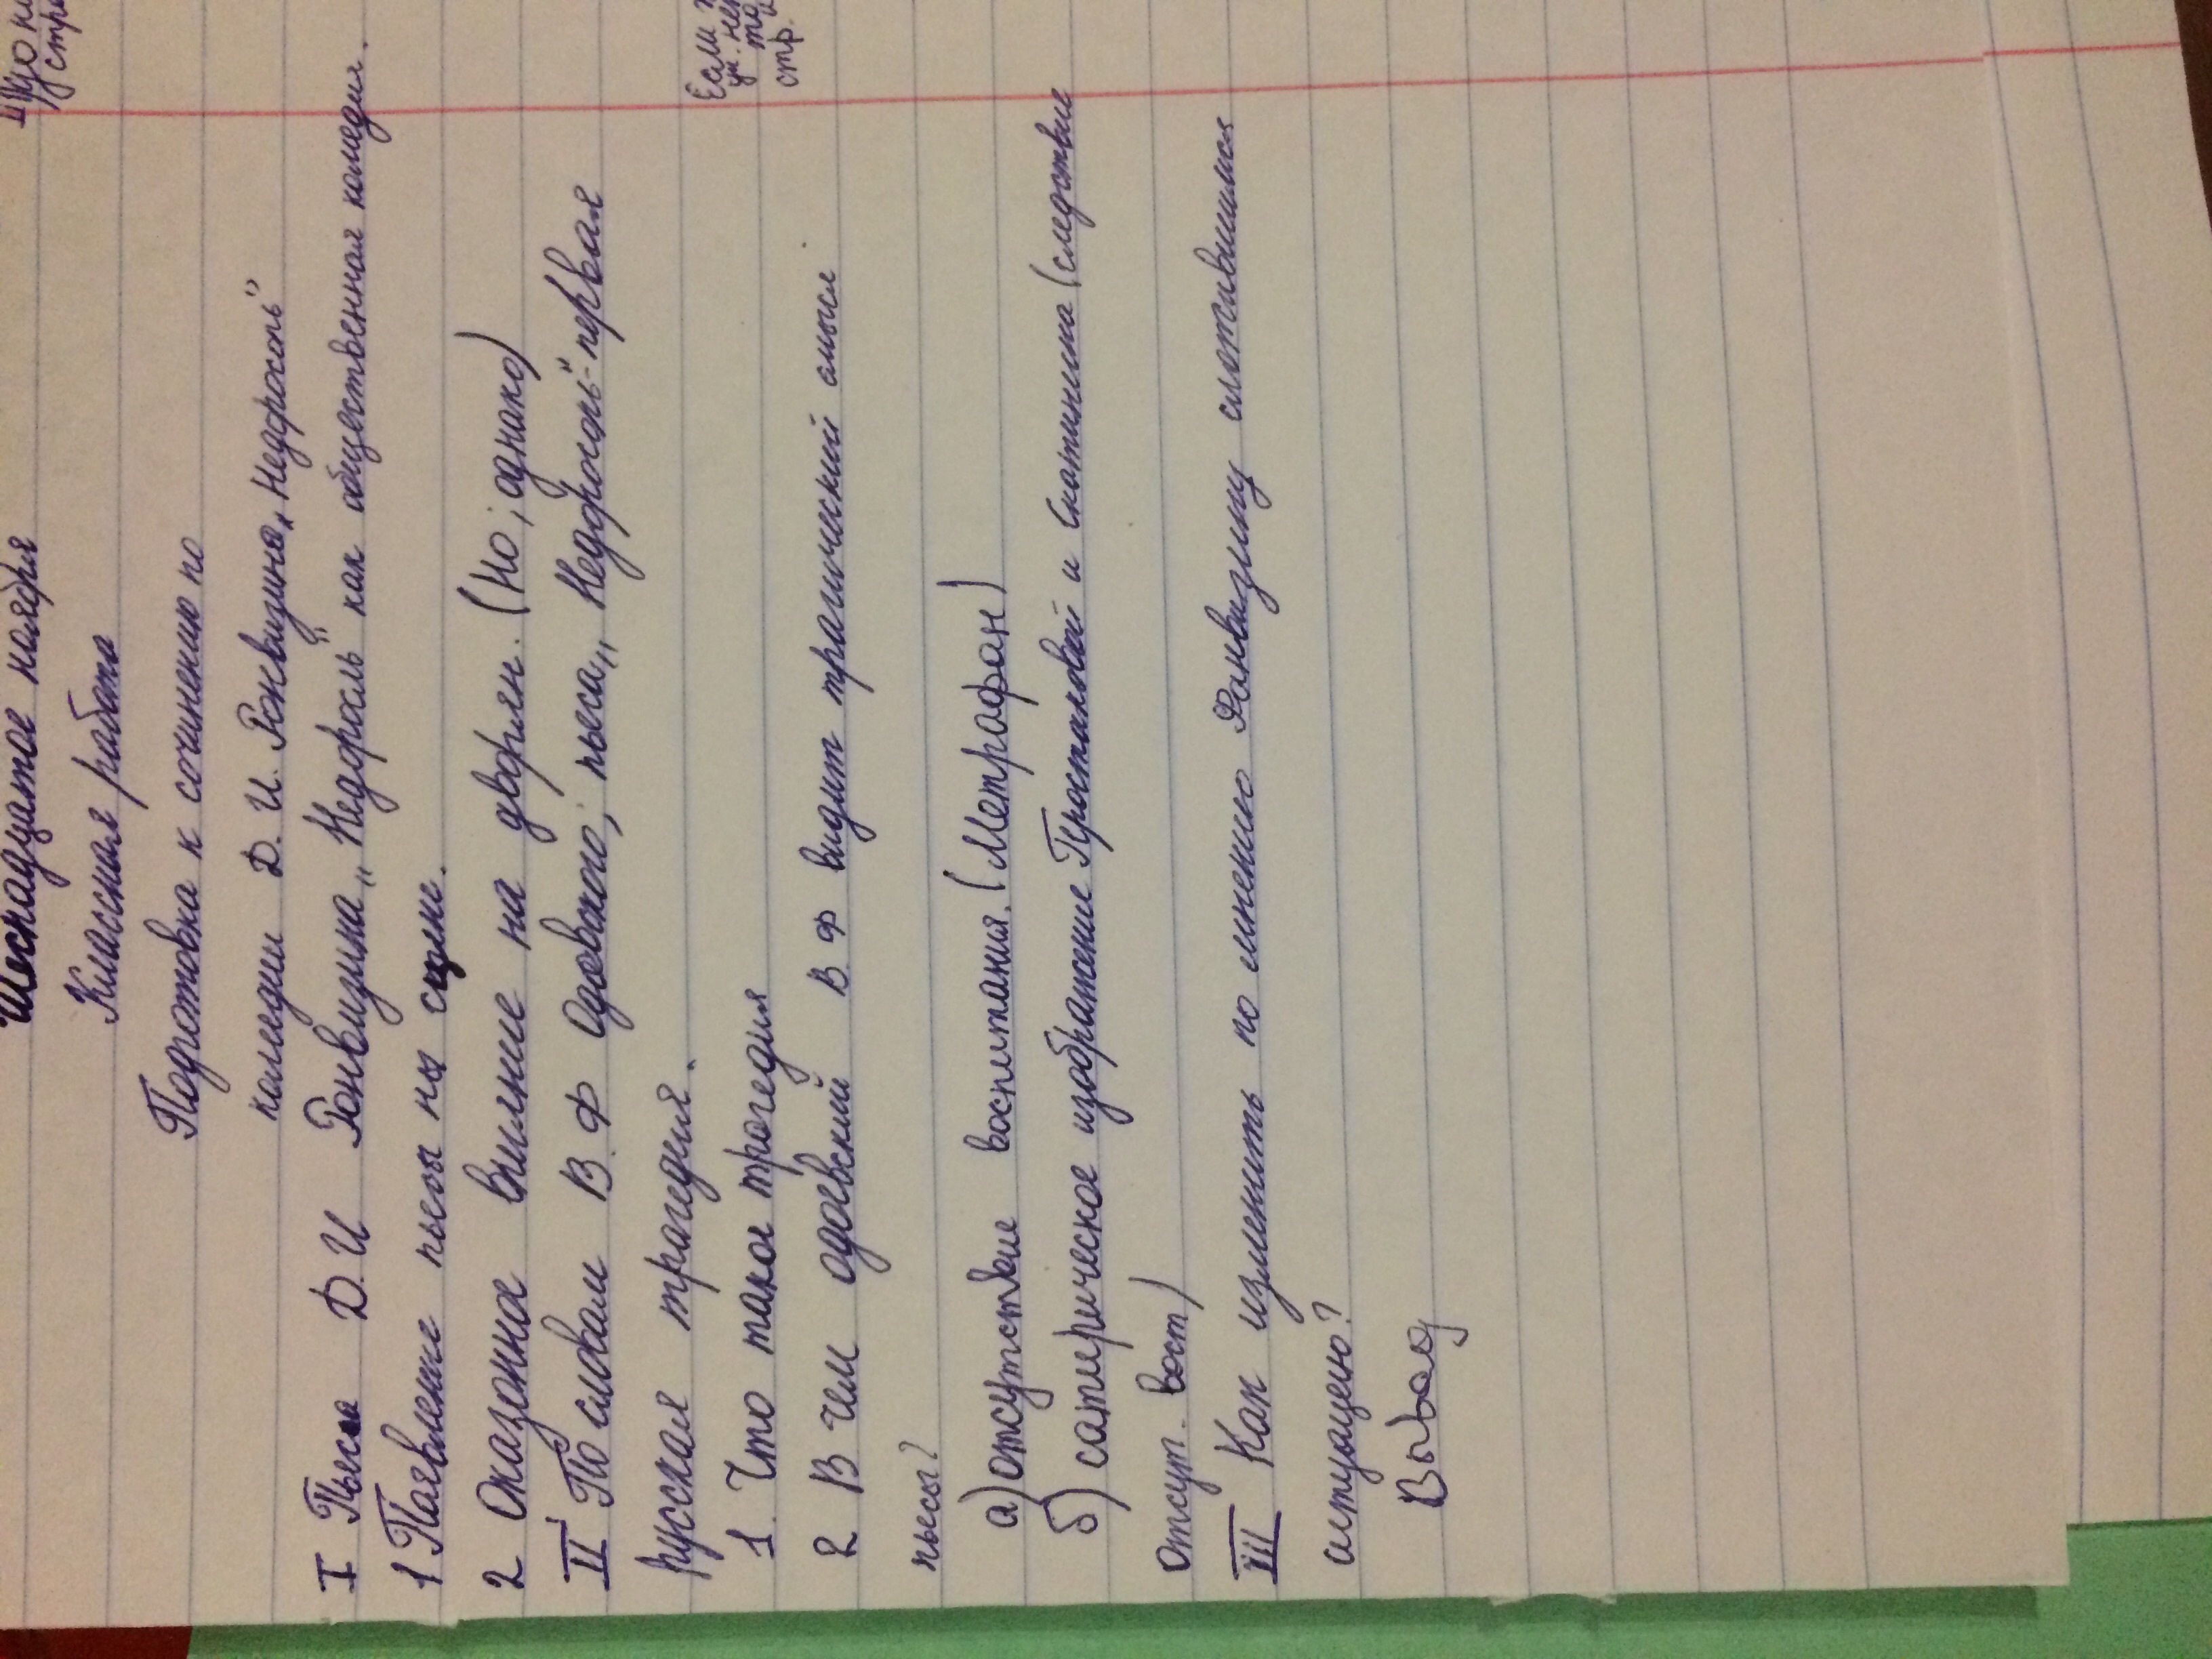 Шеснадцатое ноября
Классная работа
Подготовка к сочинению по
комедии Д. И. Фонвизина „Недросоль"
I Пьеса Д. И Фонвизина „Недросль" как общественная комедия.
1 Паявление пьесы на сцене.
2 Оказонное влияние на дворян. (Но; однако)
II По словам В. Ф Одоевского; пьеса „Недоросоль"- первая
русская трагедия.
1. Что такое трогедия
2 В чем одоевский В Ф видит трагический смысл
пьесы?
а) отсутствие воспитания. (Метрафан)
б) сатерическое изображение Простаковой и Скотинина (следствие
отсут. восп)
III Как изменить по мнению Фонвизину сложившимся
ситуацею?
Вывод
Если
стр.